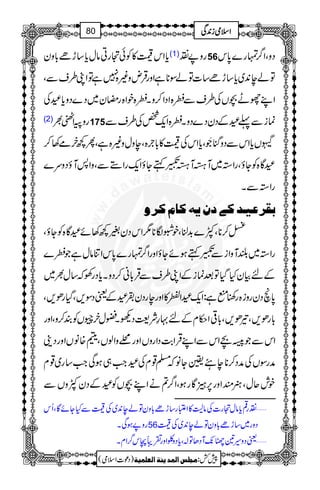 80
اسلامی زندگی
دو، اگر تمہارے پاس 56 روپے نقد (1) یا اس قیمت کا کوئی تجارتی مال یا ساڑھے باون
تولے چاندی یا ساڑھے سات تولے سونا ہے اور قرض وغیرہ نہیں ہے تو اپنی طرف سے،
اپنے چھوٹے بچوں کی طرف سے فطرہ ادا کرو۔ فطرہ خواہ رمضان میں دے دو یا عید کی
نمازسے پہلے عید کے دن دے دو۔ فطرہ ایک شخص کی طرف سے 175 روپیہ اٹھنی بھر (2)
گیہوں یا اس کا دُگنا جو، یا اس کی قیمت کا باجرہ، چاول وغیرہ ہے، پھر کچھ خرمے کھا کر
عید گاہ کو جاؤ، راستہ میں آہستہ آہستہ تکبیر کہتے جاؤ ایک راستے سے، واپس آؤ دوسرے
راستہ سے۔
بقر عید کے دن یہ کام کرو
غسل کرنا، کپڑے بدلنا، خوشبو لگانا مگر اس دن بغیر کچھ کھائے عید گاہ کو جاؤ،
راستہ میں بلند آواز سے تکبیر کہتے ہوئے جاؤ اور اگر تمہارے پاس اتنا مال ہے جو فطرے
کے لئے بیان کیا گیا تو بعد نماز اپنے گھر کی طرف سے قربانی کر دو۔ یاد رکھو کہ سال بھر میں
پانچ دن روزہ رکھنا منع ہے ایک عید الفطر کا اور چار دن بقر عید کے یعنی دسویں، گیارھویں،
بارھویں، تیرھویں، باقی احکام کے لئے بہار شریعت دیکھو۔ فضول خرچیوں کو بند کرو، اور
اس سے جو پیسہ بچے اس سے اپنے قرابت داروں اور محلے والوں، یتیم خانوں اور دینی
مدرسوں کی مدد کرنا چاہئے۔ یقین جانو کہ مسلم قوم کی عید جب ہی ہوگی جب ساری قوم
خوش حال، ہنر مند اور پرہیز گار ہو، اگر تم نے اپنے بچوں کو عید کے دن کپڑوں سے
1 ..... نقد رقم یا مال تجارت کی مالیت کا اعتبار ساڑھے باون تولے چاندی کی قیمت سے کیا جائے گا، اُس
دور میں ساڑھے باون تولے چاندی کی قیمت 56 روپے ہوگی۔
پیش کش: مجلس المدینۃ العلمیۃ (دعوت اسلامی)